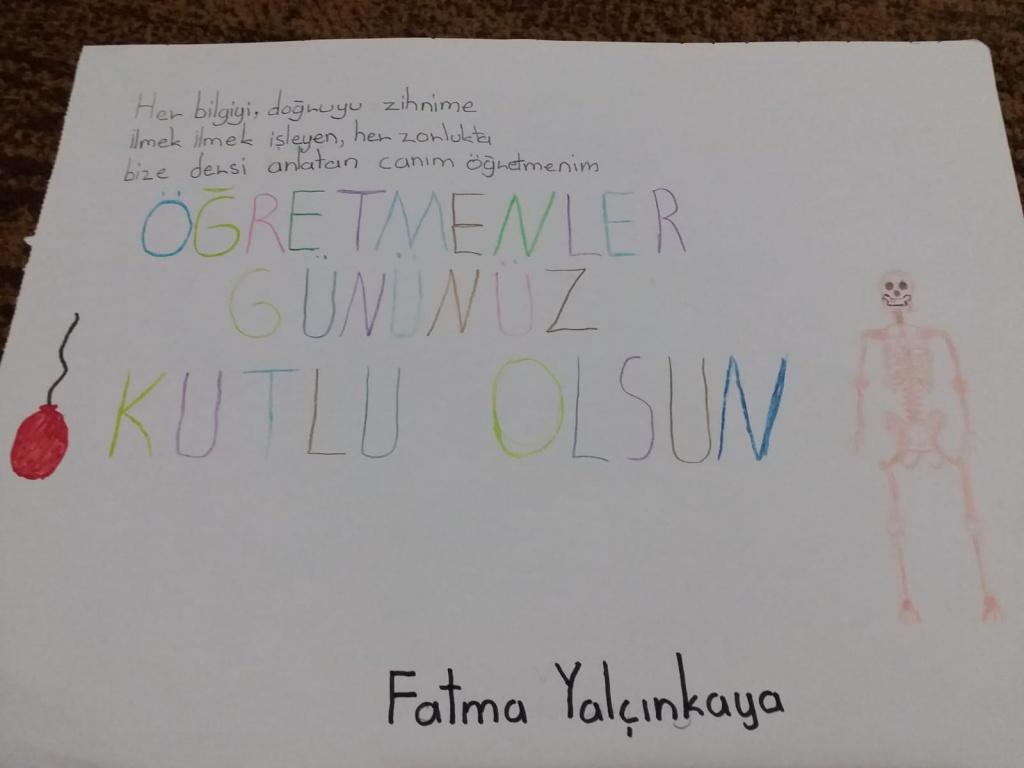 Her bilgiyi, doğruyu zihnime
ilmek ilmek işleyen, her zorlukta
bize dersi anlatan canım öğretmenim
ÖĞRETMENLER
GÜNÜNÜZ
KUTLU OLSUN
Fatma Yalçınkaya